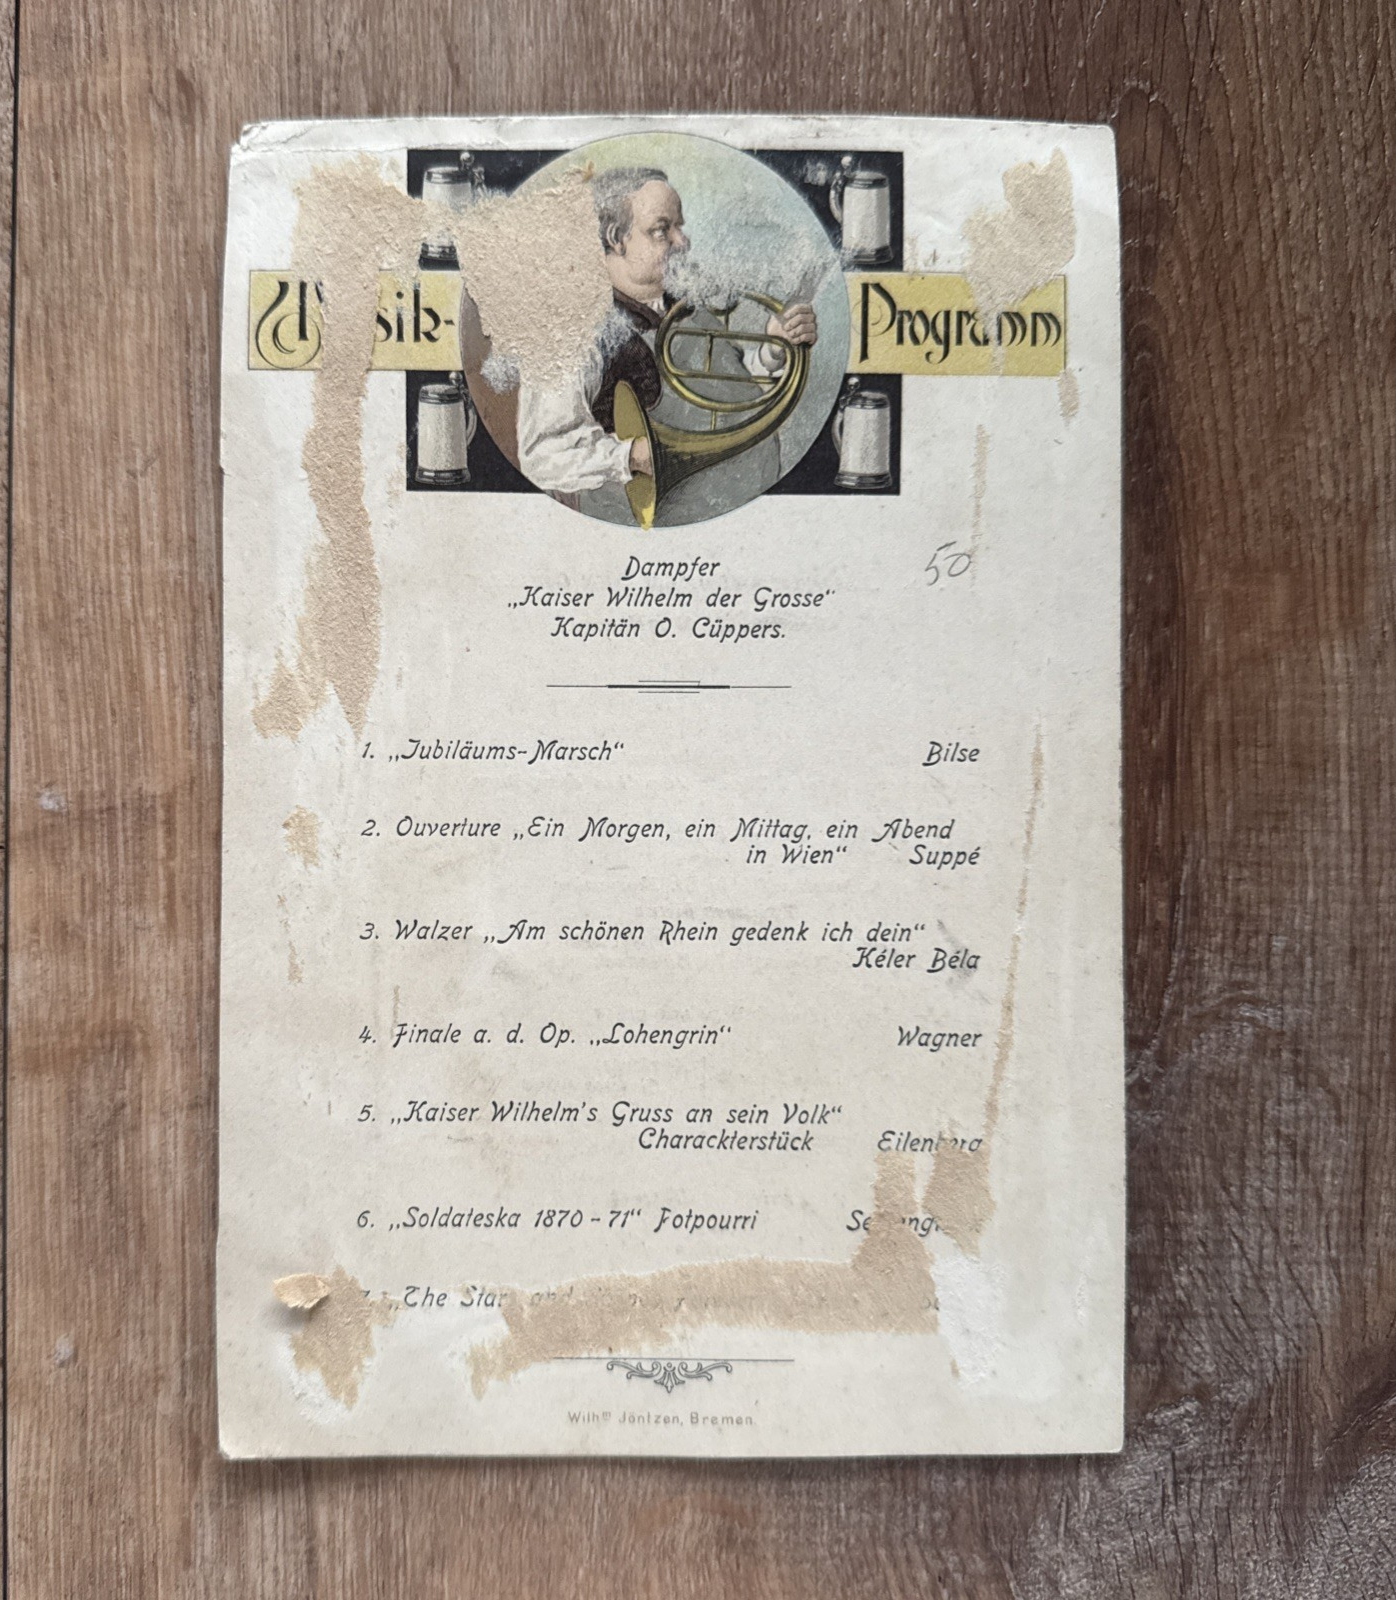 Musik-Programm
50
Dampfer
„Kaiser Wilhelm der Grosse“
Kapitän O. Cüppers.
1. „Jubiläums-Marsch“ Bilse
2. Ouverture „Ein Morgen, ein Mittag, ein Abend
in Wien“ Suppé
3. Walzer „Am schönen Rhein gedenk ich dein“
Kéler Béla
4. Finale a. d. Op. „Lohengrin“ Wagner
5. „Kaiser Wilhelm's Gruss an sein Volk“
Charackterstück Eilenberg
6. „Soldateska 1870-71“ Potpourri
7. „The Stars and
Wilhm Jöntzen, Bremen.